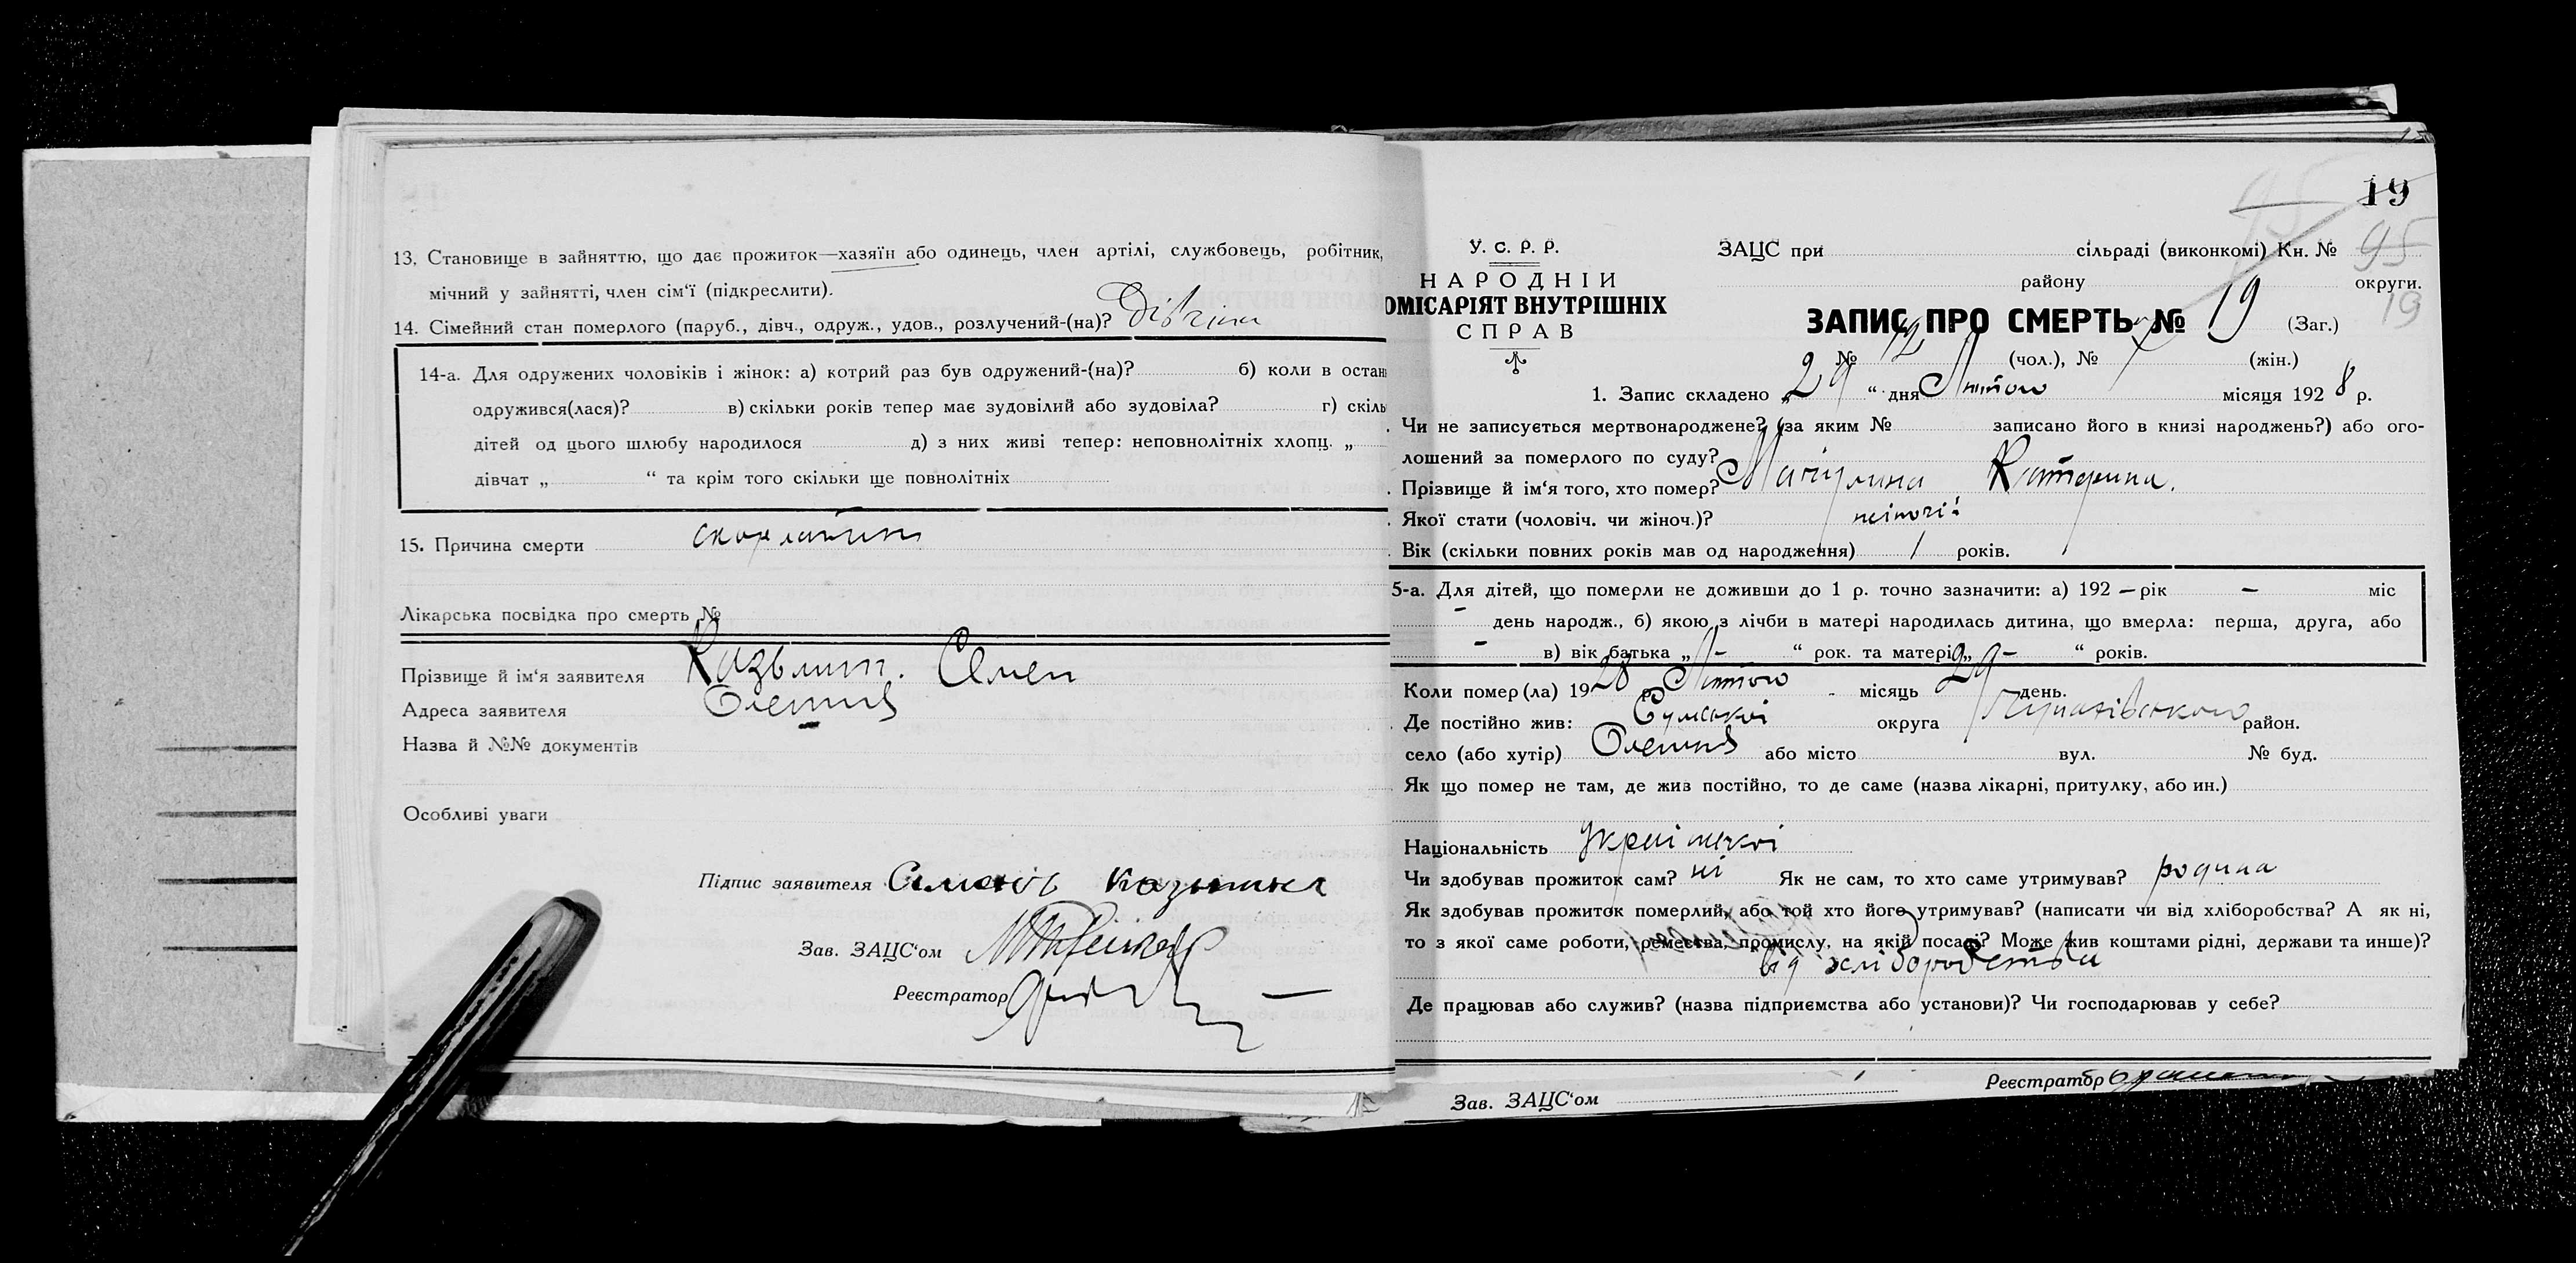 13. Становище в зайняттю, що дає прожиток—хазяїн або одинець, член артілі, службовець, робітник,
мічний у зайнятті, член сім'ї (підкреслити).
14. Сімейний стан померлого (паруб., дівч., одруж., удов., розлучений-(на)? Дівчина
14-а. Для одружених чоловіків і жінок: а) котрий раз був одружений-(на)? б) коли в остан
одружився(лася)? в) скільки років тепер має зудовілий або зудовіла? г) скіль
дітей од цього шлюбу народилося д) з них живі тепер: неповнолітніх хлопц. „
дівчат „ “ та крім того скільки ще повнолітніх
15. Причина смерти скорлатина
Лікарська посвідка про смерть №
Прізвище й ім'я заявителя Семен
Адреса заявителя
Назва й №№ документів
Особливі уваги
Підпис заявителя
Зав. ЗАЦС'ом
Реєстратор
19
У. С. Р. Р.
НАРОДНІЙ
ОМІСАРІЯТ ВНУТРІШНІХ
СПРАВ
ЗАЦС при сільраді (виконкомі) Кн. № 95
району округи.
19
ЗАПИС ПРО СМЕРТЬ № 19 (Заг.)
№ 12 (чол.), № 7 (жін.)
1. Запис складено „29“ дня Лютого місяця 1928 р.
Чи не записується мертвонароджене? (за яким № записано його в книзі народжень?) або ого-
лошений за померлого по суду?
Прізвище й ім'я того, хто помер? Катерина.
Якої стати (чоловіч. чи жіноч.)? жіночої
Вік (скільки повних років мав од народження) 1 років.
5-а. Для дітей, що померли не доживши до 1 р. точно зазначити: а) 192 – рік – міс
– день народж., б) якою з лічби в матері народилась дитина, що вмерла: перша, друга, або
– в) вік батька „ – “ рок. та матері „ – “ років.
Коли помер (ла) 1928 р. Лютого місяць 29 день.
Де постійно жив: Сумської округа район.
село (або хутір) або місто вул. № буд.
Як що помер не там, де жив постійно, то де саме (назва лікарні, притулку, або ин.)
Національність
Чи здобував прожиток сам? ні Як не сам, то хто саме утримував? родина
Як здобував прожиток померлий, або той хто його утримував? (написати чи від хліборобства? А як ні,
то з якої саме роботи, ремества, промислу, на якій посаді? Може жив коштами рідні, держави та инше)?
від хліборобства
Де працював або служив? (назва підприємства або установи)? Чи господарював у себе?
Зав. ЗАЦС'ом Реєстратор